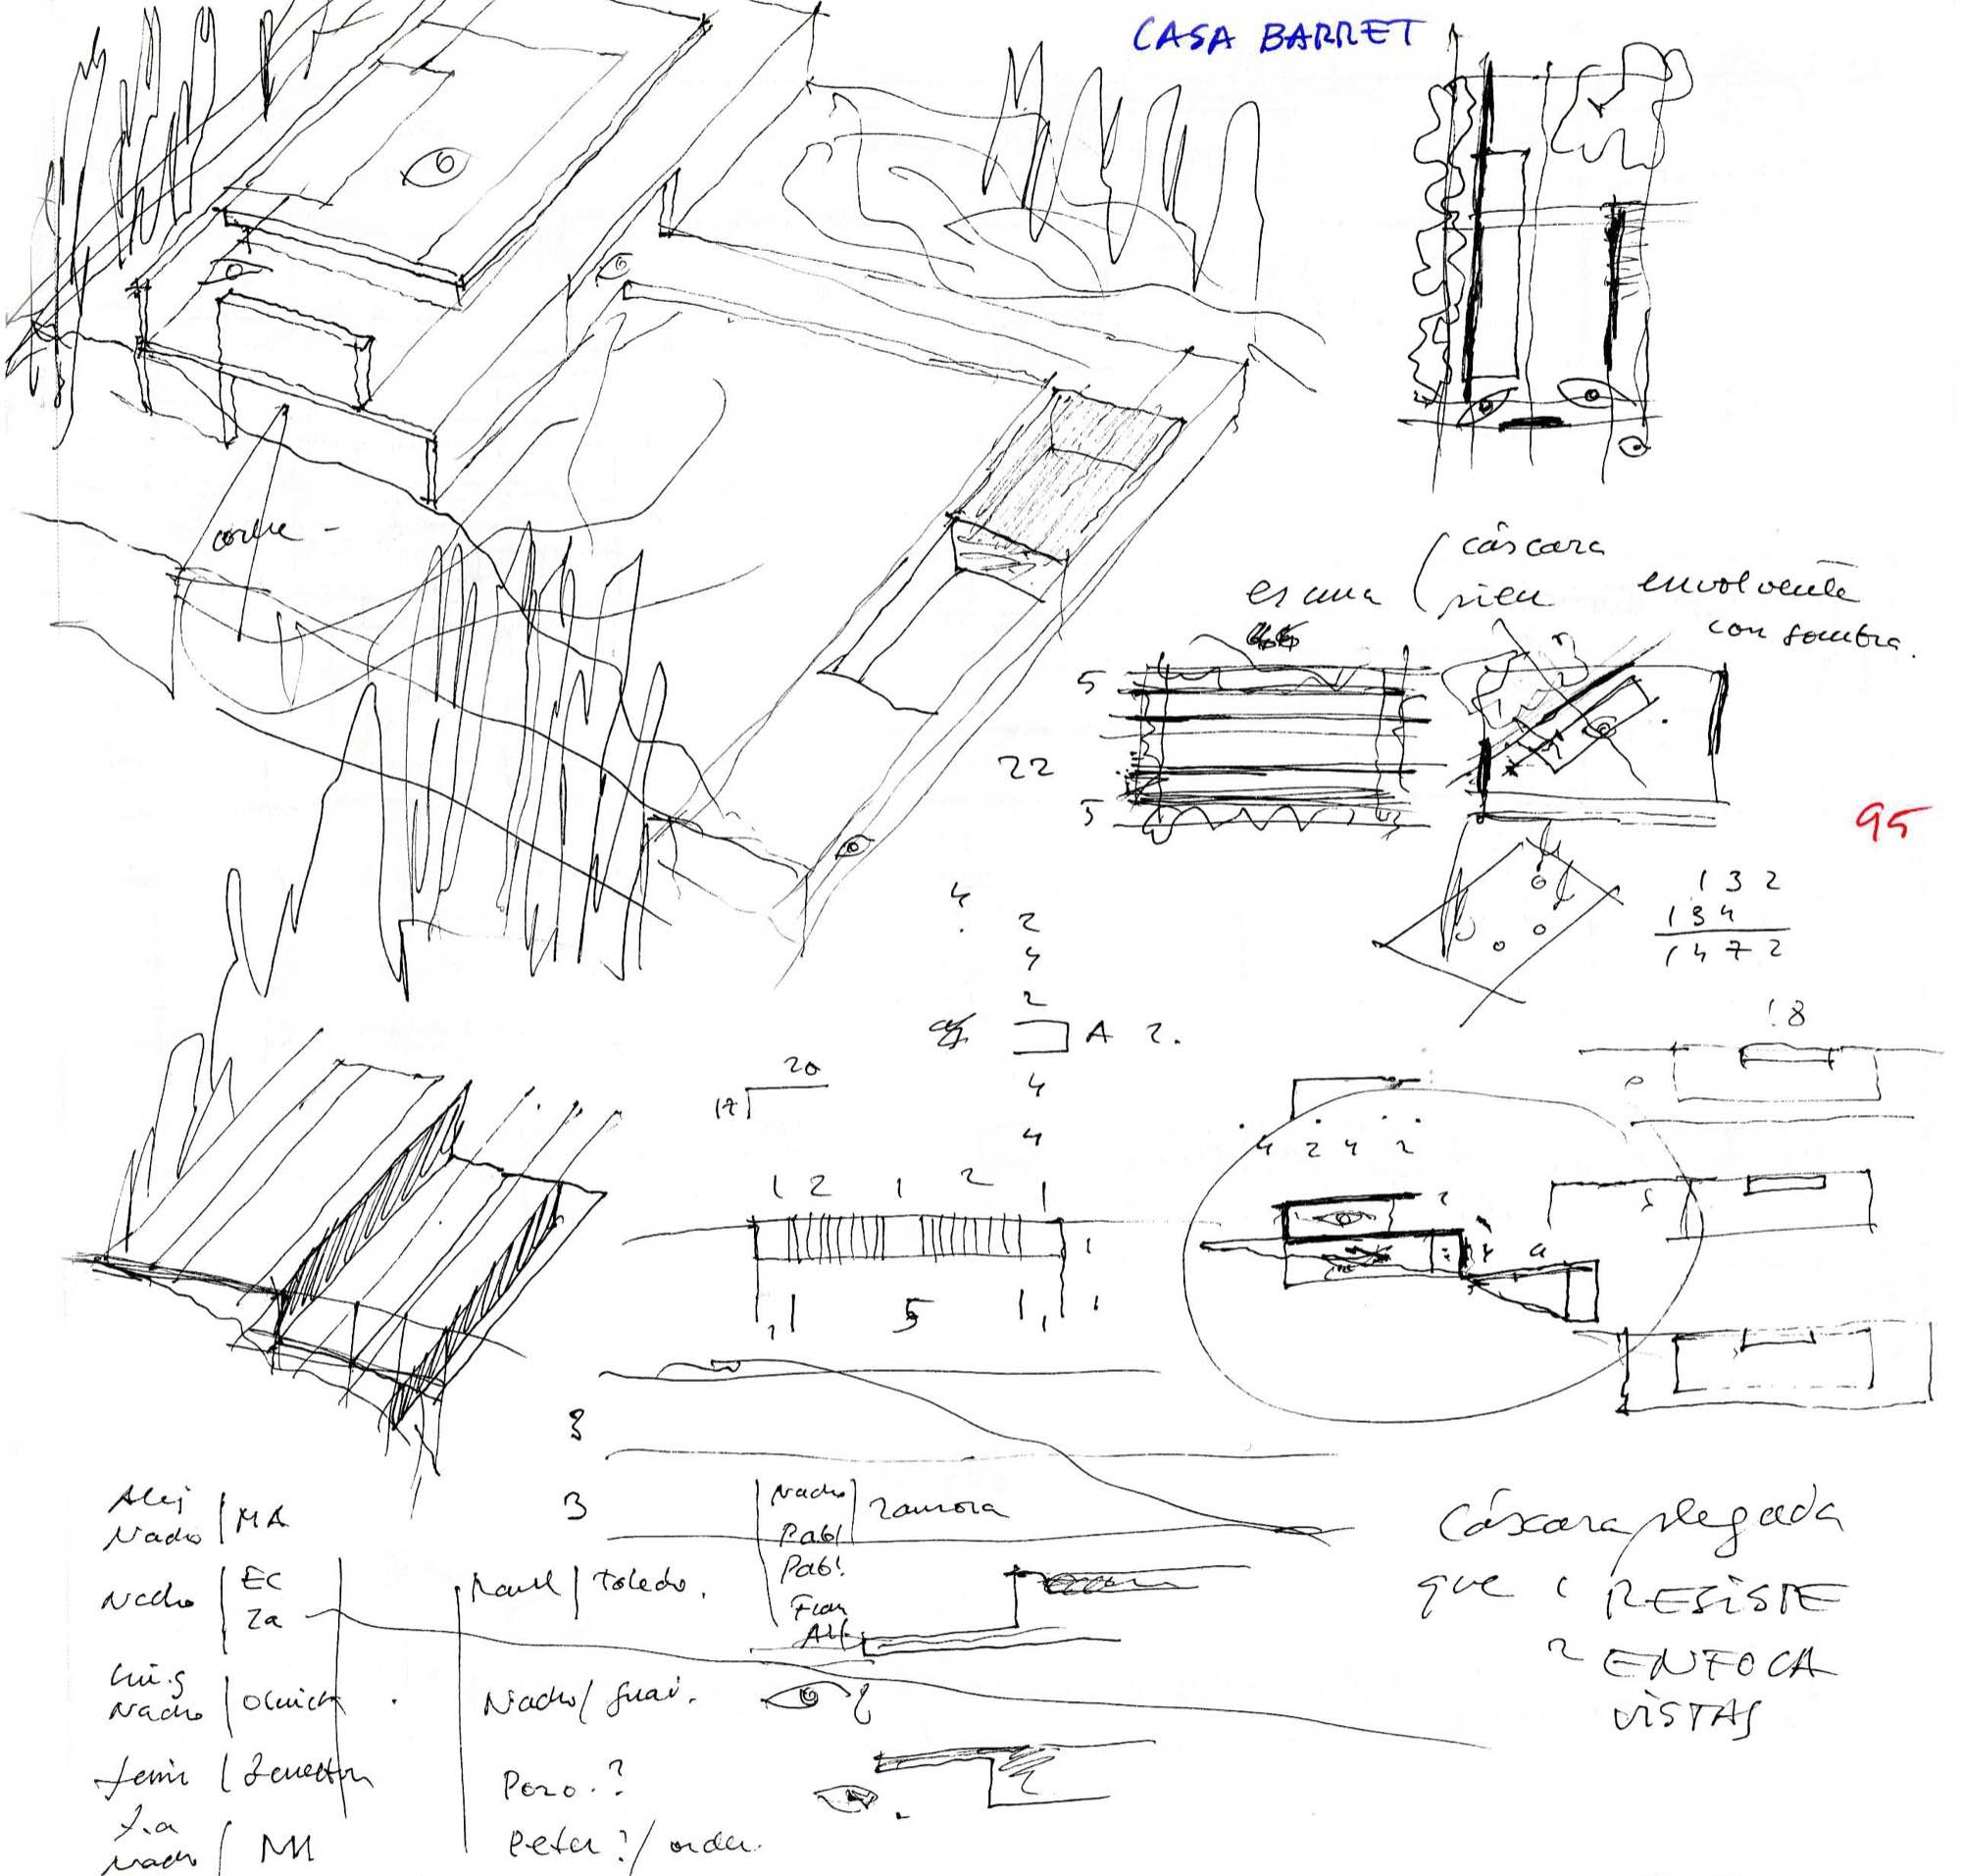 CASA BARRET
es una
cáscara
piel
envolvente
con sombra.
5
22
5
95
132
134
1472
4
2
4
2
A 2.
4
4
18
20
17
4 2 4 2
1 2 1 2 1
1 5 1
3
3
Alej
Nacho | MA
Nacho | EC
Za
Raul | Toledo.
Nacho | Zamora
Pabl
Pabl
Fran
Alf
Luis
Nacho
Nacho /
Pozo.?
Peter ?/ order.
Nacho
cáscara plegada
que 1 RESISTE
2 ENFOCA
VISTAS